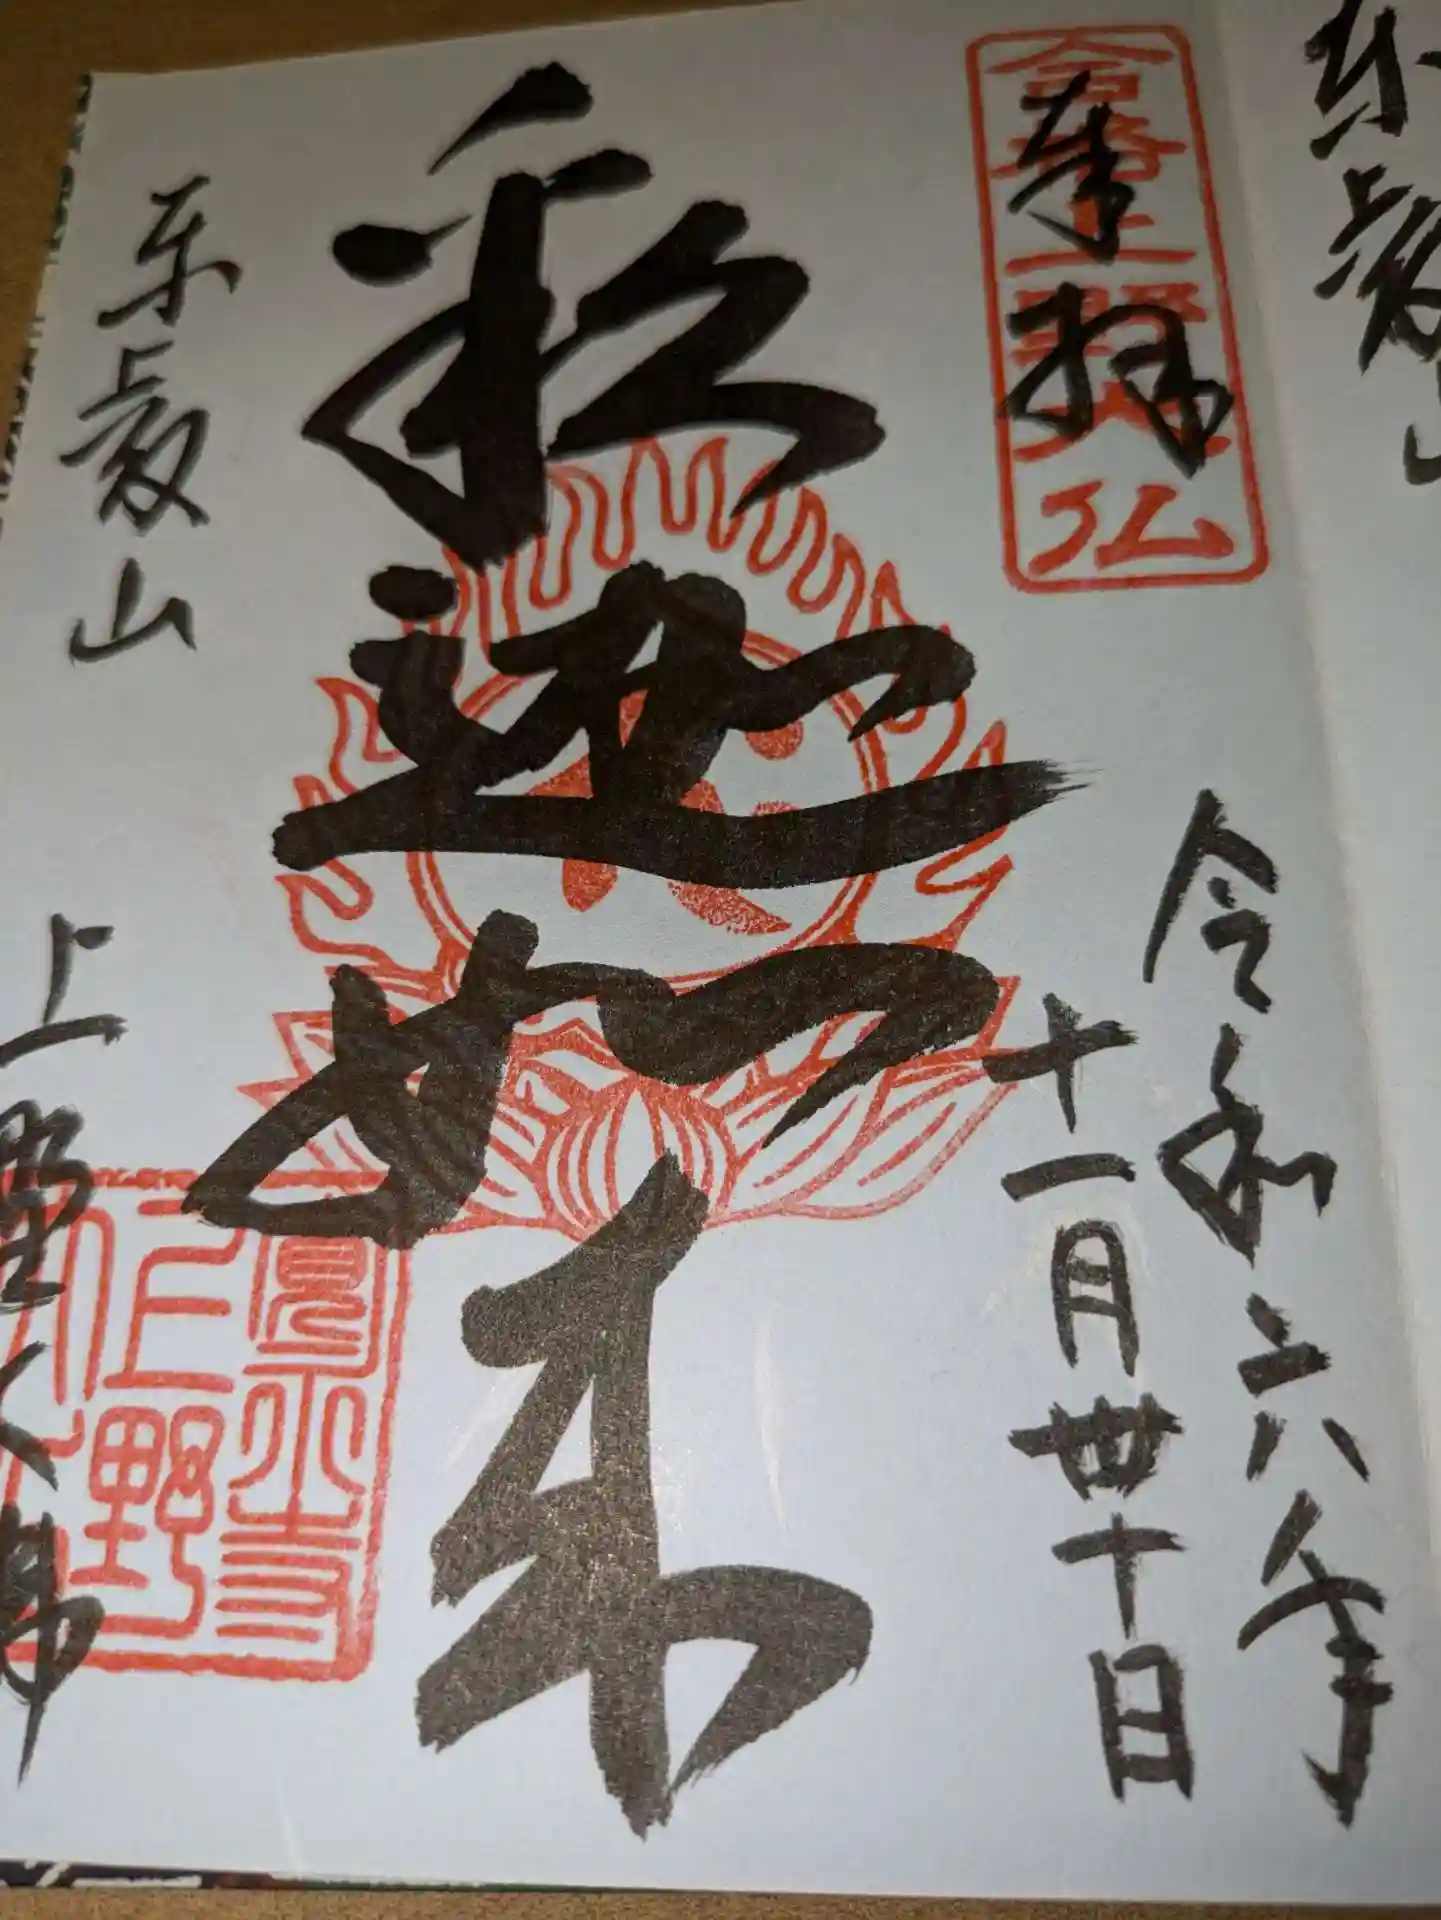 東叡山
合格上野大仏
奉拝
令和六年
十一月丗十日
釈迦如来
東叡山
上野大佛
寛永寺
上野